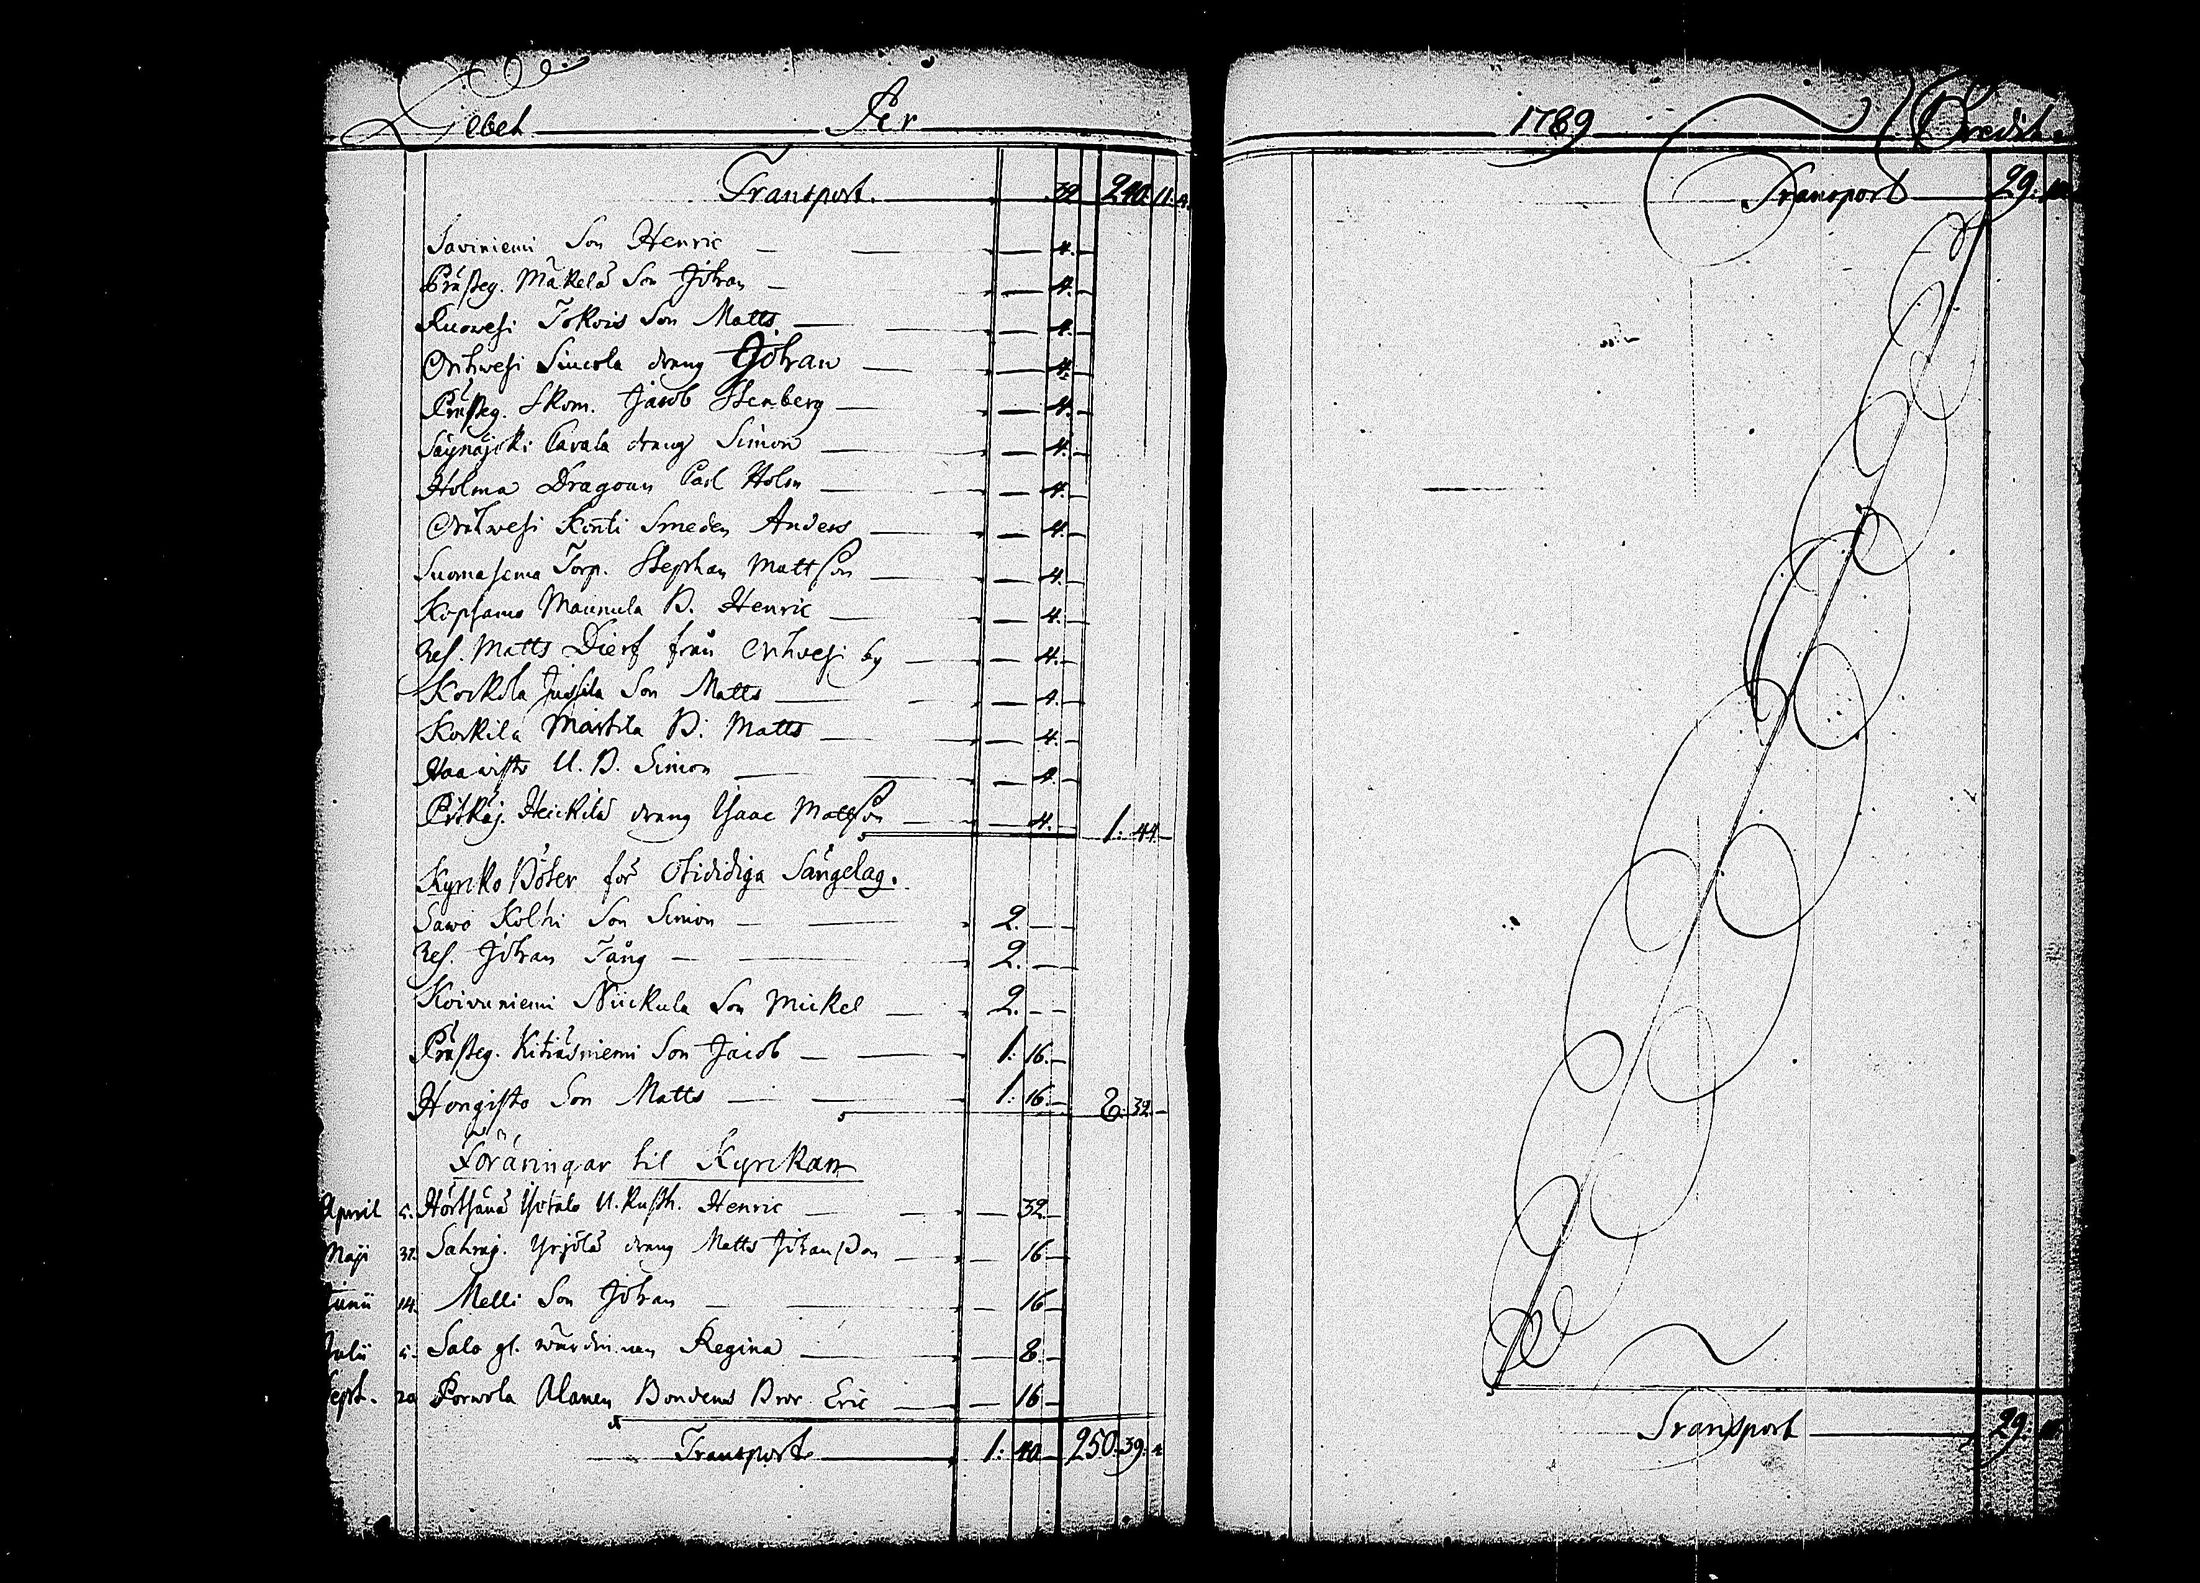 Debet Per
Transport. 32 240. 11. 4.
Saviniemi Son Henric 4.
Prästeg. Mäkelä Son Johan 4.
Ruowesi Tokois Son Matts 4.
Orihwesi Sincola dräng Johan 4.
Prästeg. Skom. Jacob Stenberg 4.
Säynäjoki Pavala dräng Simon 4.
Holma Dragoun Carl Holm 4.
Orihwesi Konti Smeden Anders 4.
Suomasema Torp. Stephan Mattson 4.
Kopsamo Maunula B. Henric 4.
Res. Matts Dierf från Orihwesi by 4.
Korkila Jussila Son Matts 4.
Korkila Marttila B. Matts 4.
Haawisto U. B. Simon 4.
Pitkäj. Heickilä dräng Isaac Mattson 4. 1: 44.
Kyrko Böter för Otididiga Sängelag.
Sawo Kolhi Son Simon 2.
Res. Johan Tång 2.
Koivuniemi Niickula Son Mickel 2.
Prästeg. Kitiäsniemi Son Jacob 1: 16.
Hongisto Son Matts 1: 16. 8: 32.
Föräringar til Kyrckan
April 5. Hörtsänä Yötalo U. Rusth. Henric 32.
Maji 31. Sahraj. Yrjölä dräng Matts Johansson 16.
Junii 14. Melli Son Johan 16
Julii 5. Salo gl. wärdinnan Regina 8.
Sept. 20 Porwola Alanen Bondens Bror Eric 16
Transport 1: 40. 250. 39. 4
1789 Credit.
Transport 29.
Transport 29.